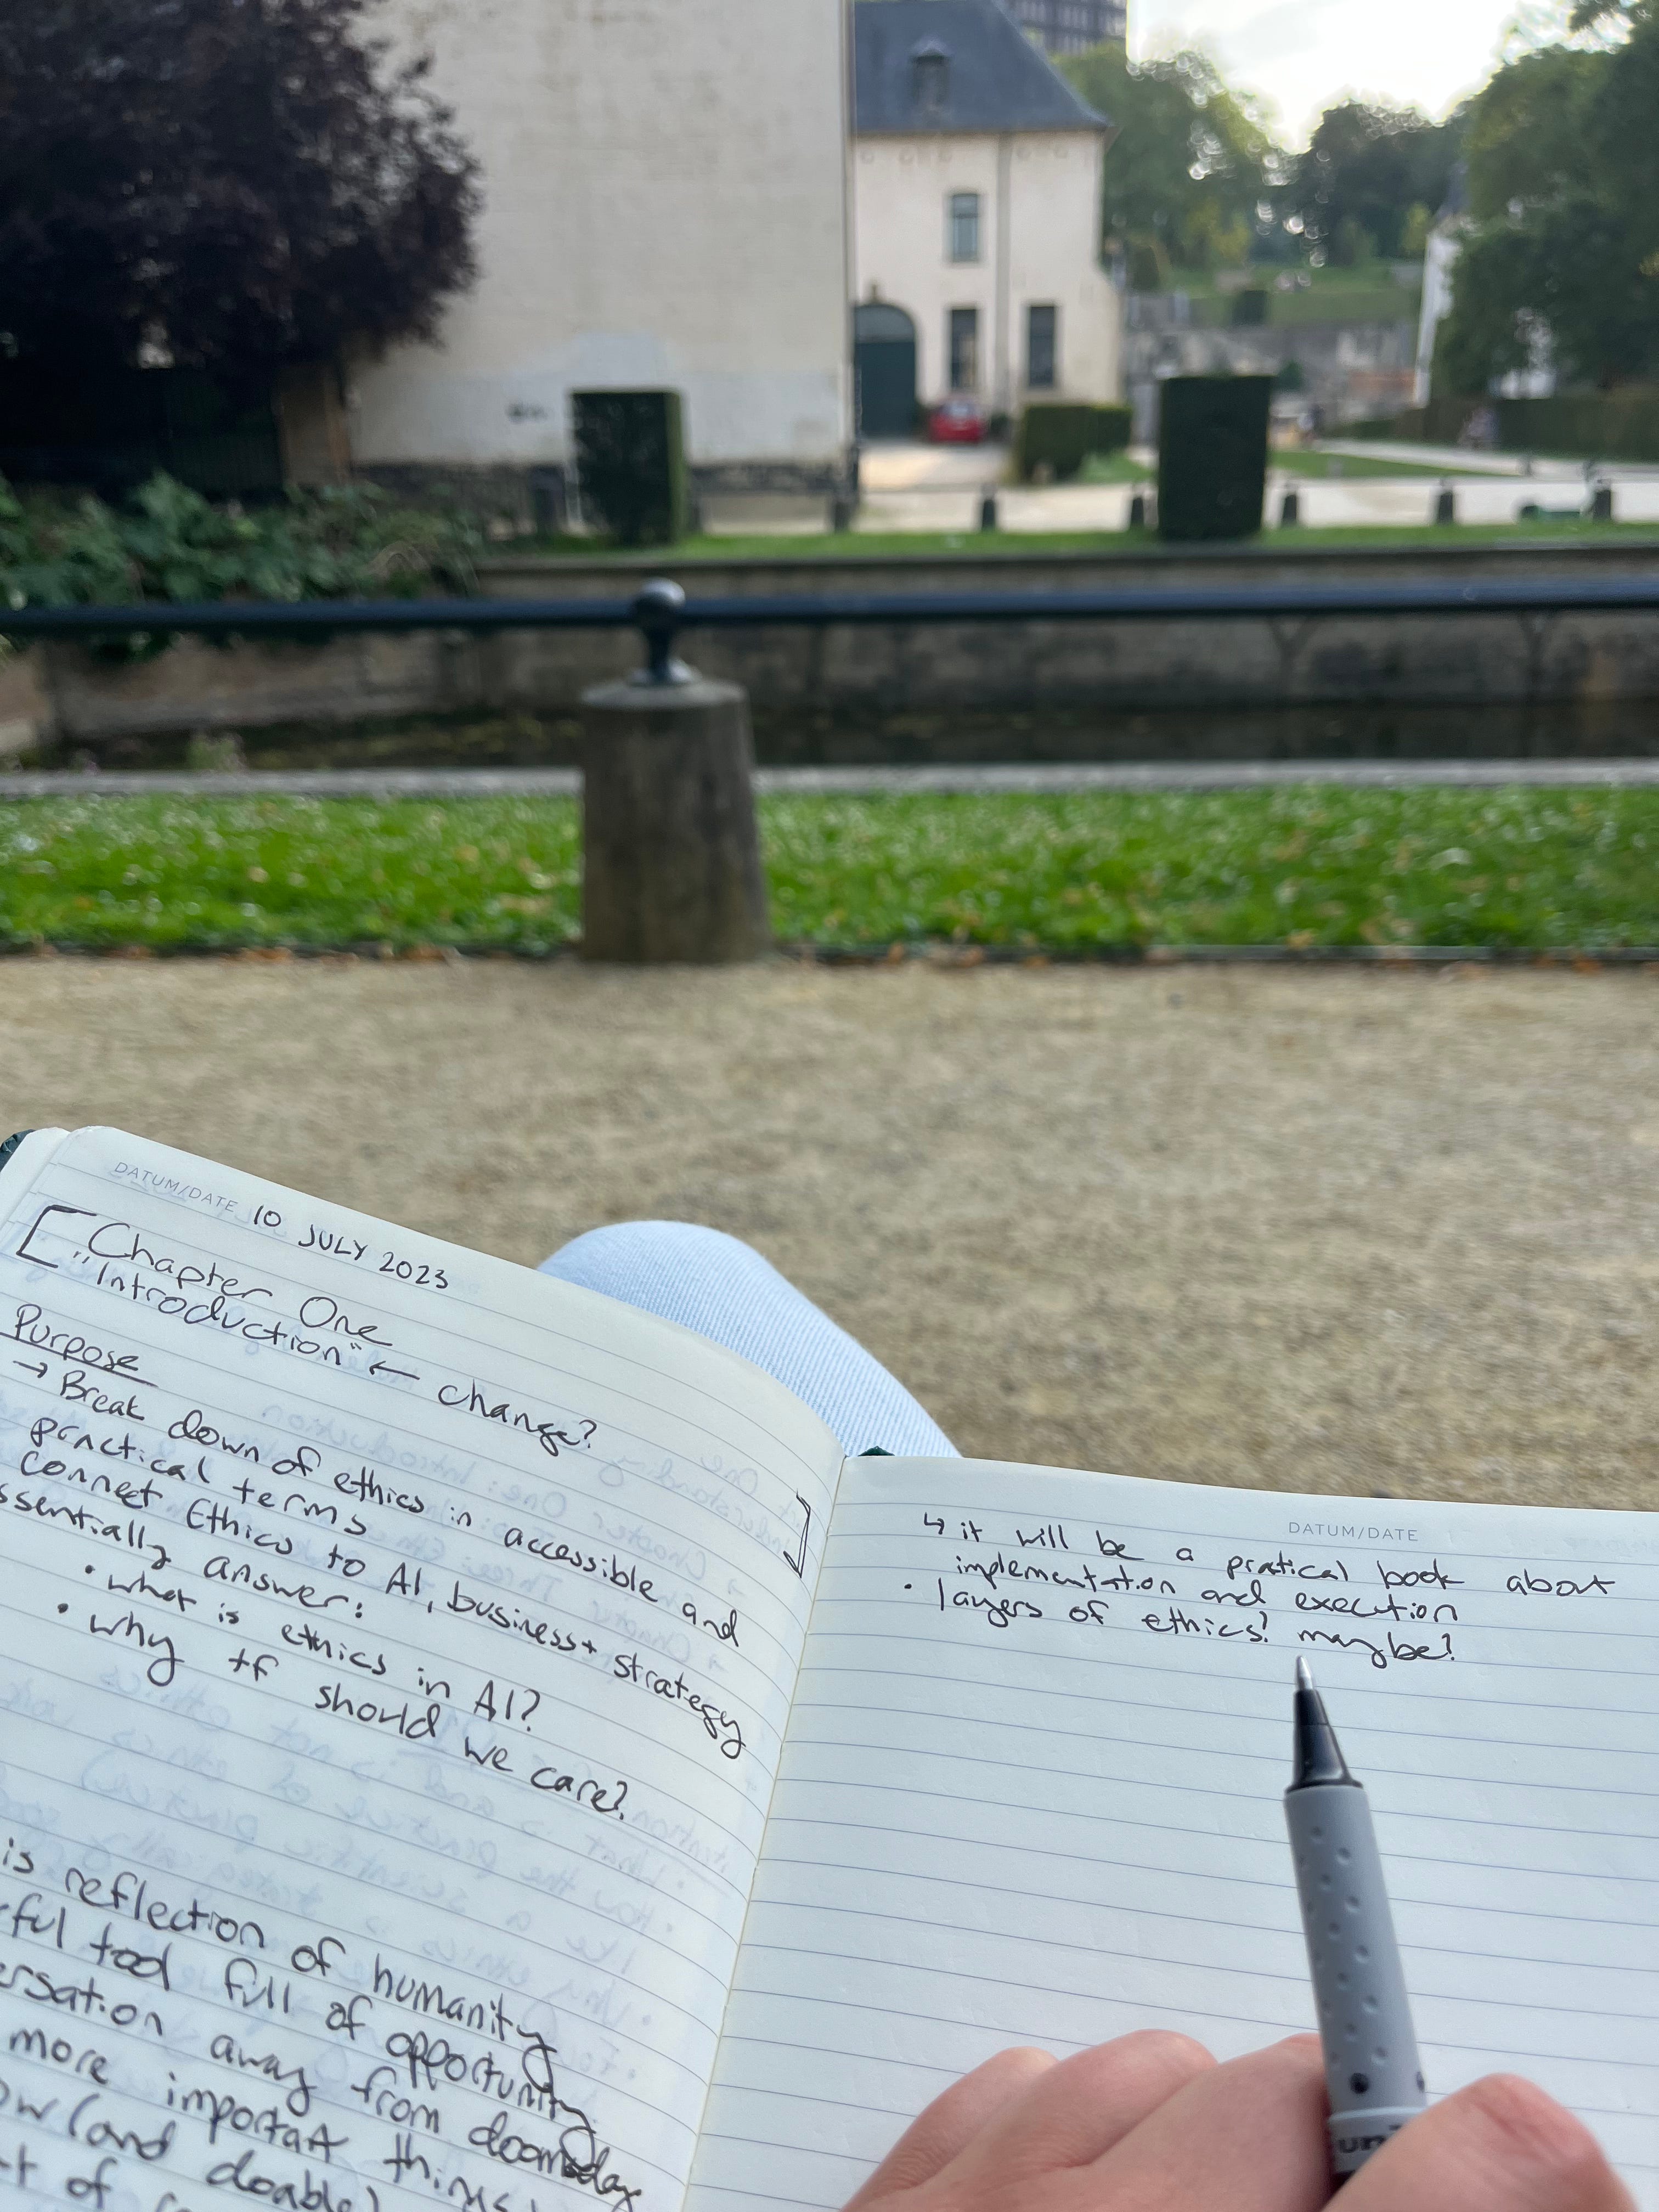 DATUM/DATE 10 JULY 2023
Chapter One
"Introduction" ← change?
Purpose
→ Break down of ethics in accessible and
practical terms
connect Ethics to AI, business + strategy
ssentially answer:
• what is ethics in AI?
• why tf should we care?
is reflection of humanity
rful tool full of opportunity
ersation away from doomsday
more important things
ow (and doable)
t of
DATUM/DATE
↳ it will be a pratical book about
implementation and execution
• layers of ethics? maybe?
uni